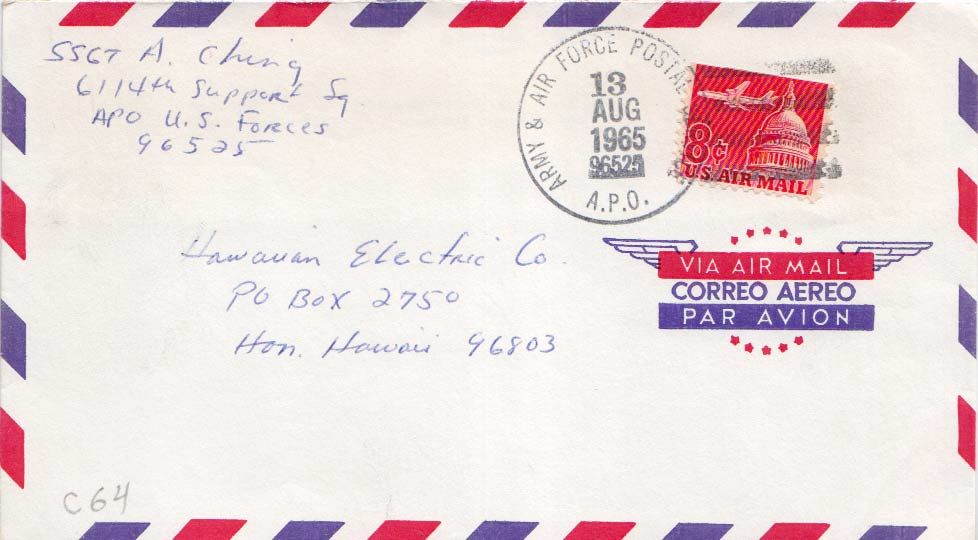 SSGT A. Ching
6114th Support Sq
APO U.S. Forces
96525
ARMY & AIR FORCE POSTAL
13
AUG
1965
96525
A.P.O.
8¢
U.S. AIR MAIL
Hawaiian Electric Co.
PO Box 2750
Hon. Hawaii 96803
VIA AIR MAIL
CORREO AEREO
PAR AVION
C64